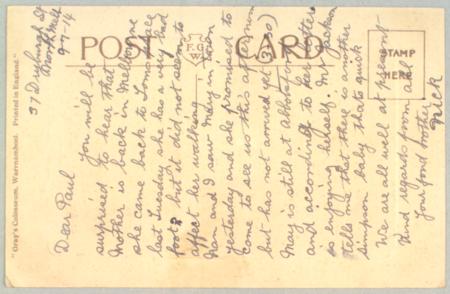 POST CARD
F.G.
W.
STAMP
HERE
"Gray's Colosseum, Warrnambool. Printed in England."
37 Dryburgh St
North Melb
9-7-14
Dear Paul
You will be
surprised to hear that
Mother is back in Melbourne
she came back to
last Tuesday she has a very bad
foot but it did not seem to
affect her walking
Nan and I saw Mary in town
yesterday and she promised to
come to see us this afternoon
but has not arrived yet (3.30)
May is still at
and according to her letters
is enjoying herself. Mr Jackson
tells me that there is another
simpson baby thats quick
We are all well at present
Kind regards from all
Your fond brother
Nick